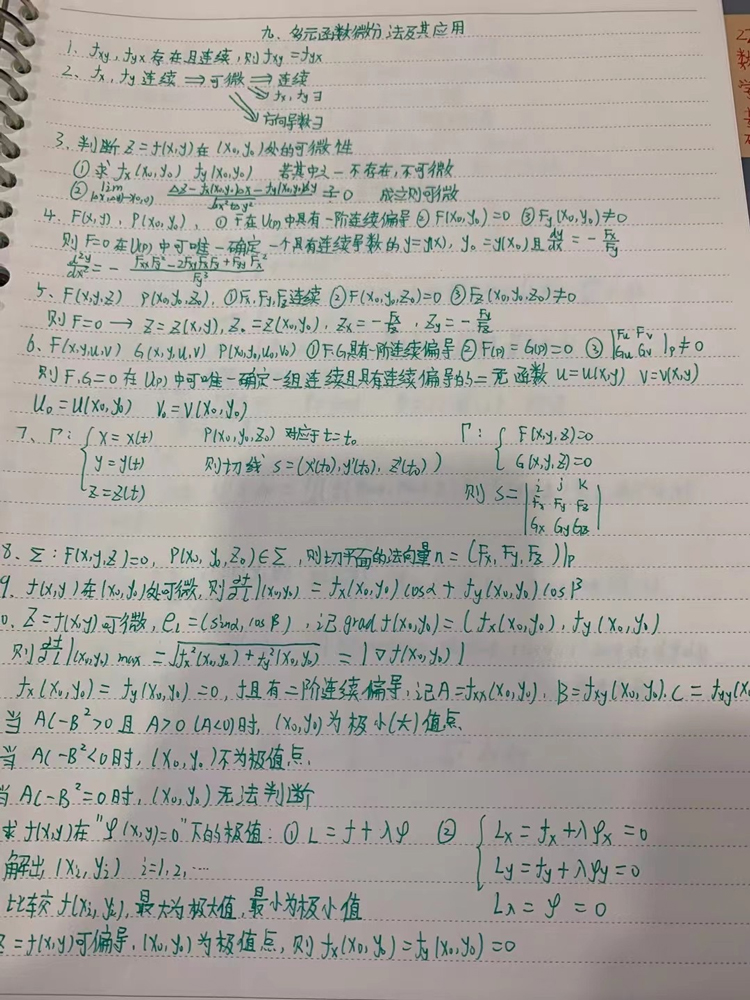 九、多元函数微分法及其应用
1、fxy,fyx存在且连续,则fxy=fyx
2、fx,fy连续⇒可微⇒连续
⇘fx,fy∃
⇘方向导数∃
3、判断z=f(x,y)在(x0,y0)处的可微性
①求fx(x0,y0) fy(x0,y0) 若其中之一不存在,不可微
②lim(Δx,Δy)→(0,0) (Δz-fx(x0,y0)Δx-fy(x0,y0)Δy)/√(Δx²+Δy²) ≟0 成立则可微
4、F(x,y),P(x0,y0),①F在U(P)中具有一阶连续偏导②F(x0,y0)=0 ③Fy(x0,y0)≠0
则F=0在U(P)中可唯一确定一个具有连续导数的y=y(x),y0=y(x0)且dy/dx=-Fx/Fy
d²y/dx²=-(FxxFy²-2FxyFxFy+FyyFx²)/Fy³
5、F(x,y,z) P(x0,y0,z0),①Fx,Fy,Fz连续②F(x0,y0,z0)=0 ③Fz(x0,y0,z0)≠0
则F=0→z=z(x,y),z0=z(x0,y0),zx=-Fx/Fz,zy=-Fy/Fz
6、F(x,y,u,v) G(x,y,u,v) P(x0,y0,u0,v0) ①F,G具有一阶连续偏导②F(P)=G(P)=0 ③|Fu Fv; Gu Gv|P≠0
则F,G=0在U(P)中可唯一确定一组连续且具有连续偏导的二元函数u=u(x,y) v=v(x,y)
u0=u(x0,y0) v0=v(x0,y0)
7、Γ:{x=x(t) P(x0,y0,z0)对应于t=t0 Γ:{F(x,y,z)=0
y=y(t) 则切线s=(x'(t0),y'(t0),z'(t0)) G(x,y,z)=0
z=z(t) 则s=|i j k; Fx Fy Fz; Gx Gy Gz|
8、Σ:F(x,y,z)=0,P(x0,y0,z0)∈Σ,则切平面的法向量n=(Fx,Fy,Fz)|P
9、f(x,y)在(x0,y0)处可微,则∂f/∂l|(x0,y0)=fx(x0,y0)cosα+fy(x0,y0)cosβ
0、z=f(x,y)可微,el=(sinα,cosβ),记grad f(x0,y0)=(fx(x0,y0),fy(x0,y0)
则∂f/∂l|(x0,y0) max=√(fx²(x0,y0)+fy²(x0,y0))=|∇f(x0,y0)|
fx(x0,y0)=fy(x0,y0)=0,f具有二阶连续偏导,记A=fxx(x0,y0),B=fxy(x0,y0),C=fyy(x0
当AC-B²>0且A>0(A<0)时,(x0,y0)为极小(大)值点
当AC-B²<0时,(x0,y0)不为极值点.
当AC-B²=0时,(x0,y0)无法判断
求f(x,y)在"φ(x,y)=0"下的极值:①L=f+λφ ②{Lx=fx+λφx=0
解出(xi,yi) i=1,2,… Ly=fy+λφy=0
比较f(xi,yi),最大为极大值,最小为极小值 Lλ=φ=0
z=f(x,y)可偏导,(x0,y0)为极值点,则fx(x0,y0)=fy(x0,y0)=0